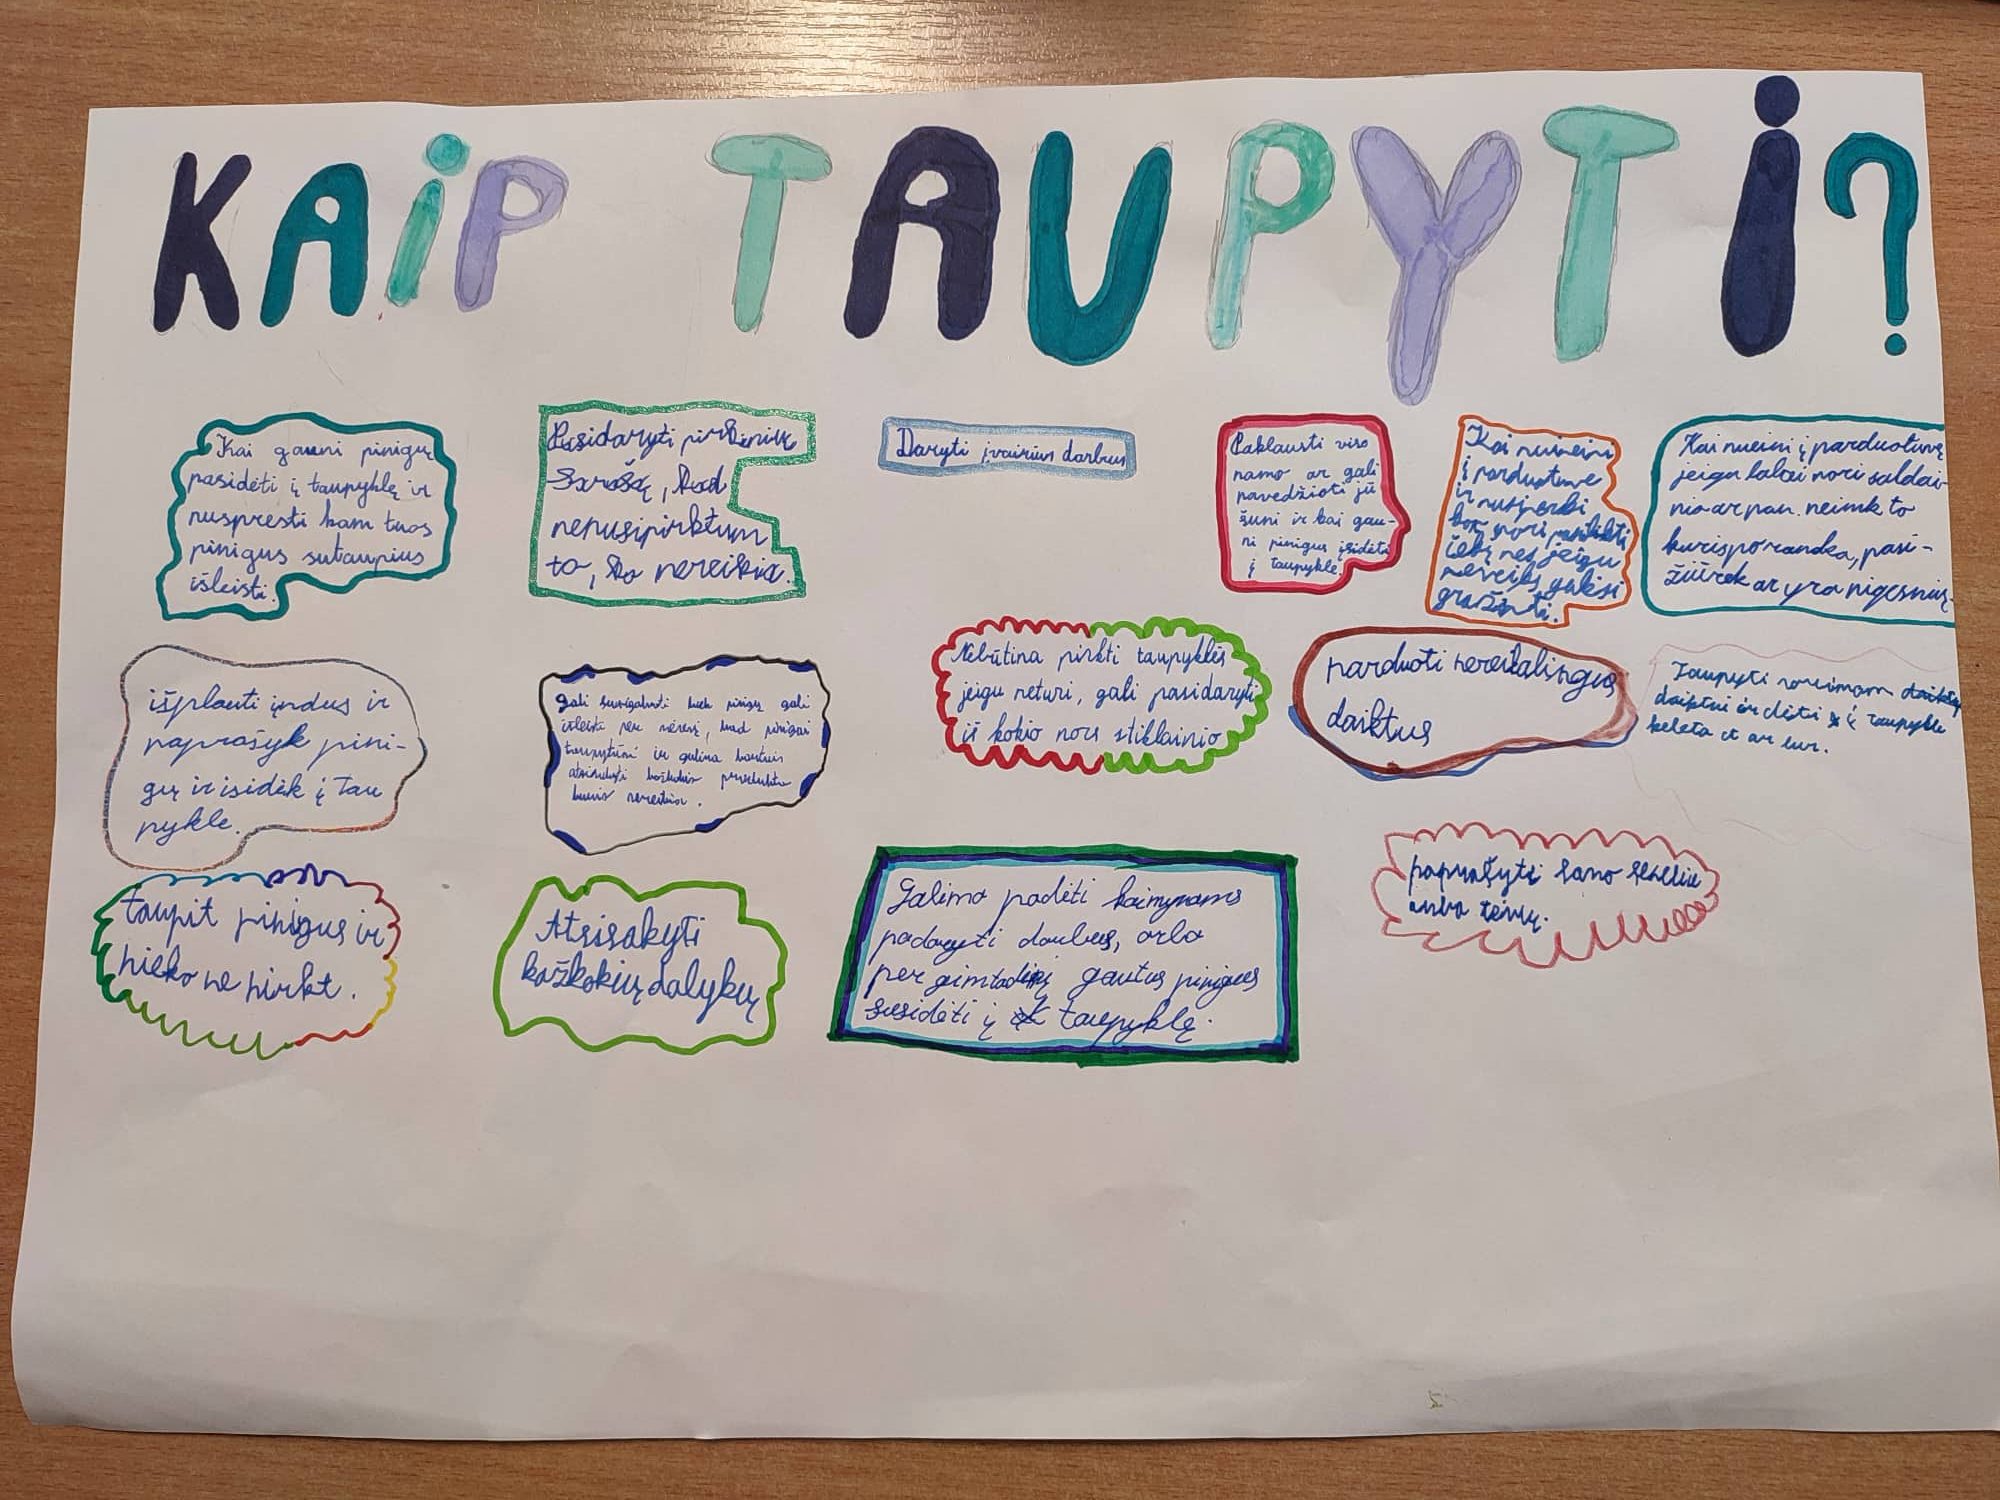 KAiP TAUPYTi?
Kai gauni pinigų
pasidėti į taupyklę ir
nuspręsti kam tuos
pinigus sutaupius
išleisti.
Pasidaryti pirkinių
Sąrašą, kad
nenusipirktum
to, ko nereikia.
Daryti įvairius darbus
Paklausti viso
namo ar gali
pavedžioti jų
šuni ir kai gau-
ni pinigus įsidėti
į taupyklę
Kai nueini
į parduotuve
ir nusiperki
nori pasilikti
čekį nes jeigu
neveiks galėsi
gražinti.
Kai nueini į parduotuvę
jeigu labai nori saldai-
nio ar pan. neimk to
kuris po ranka, pasi-
žiūrėk ar yra pigesnių.
išplauti indus ir
paprašyk pini-
gų ir isidėk į Tau
pykle.
gali susigalvoti kiek pinigų gali
išleisti per mėnesį, kad pinigai
taupytūsi ir galima kartais
atsisakyti kažkokio produkto
kurio nereikia.
Nebūtina pirkti taupyklės
jeigu neturi, gali pasidaryti
iš kokio nors stiklainio
parduoti nereikalingus
daiktus
Taupyti norimam
daiktui ir dėti į taupykle
keleta ct ar eur.
taupit pinigus ir
nieko ne pirkt.
Atsisakyti
kažkokių dalykų
Galima padėti kaimynams
padaryti darbus, arba
per gimtadienį gautus pinigus
susidėti į taupyklę.
paprašyti savo seneliu
arba tėvų.